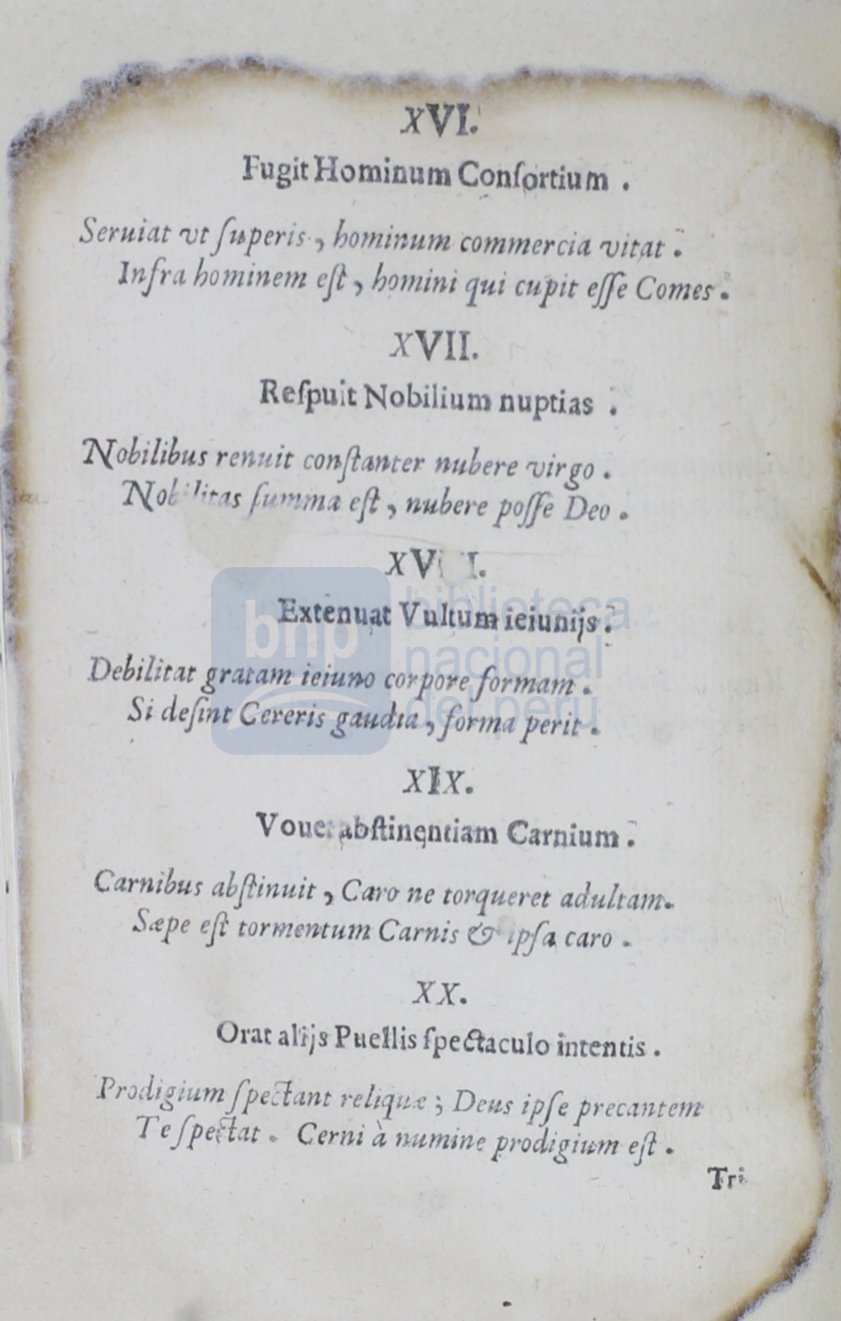 XVI.
Fugit Hominum Conſortium .
Seruiat vt ſuperis , hominum commercia vitat .
Infra hominem eſt , homini qui cupit eſſe Comes .
XVII.
Reſpuit Nobilium nuptias .
Nobilibus renuit conſtanter nubere virgo .
Nobilitas ſumma eſt , nubere poſſe Deo .
XVIII.
Extenuat Vultum ieiunijs .
Debilitat gratam ieiuno corpore formam .
Si deſint Cereris gaudia , forma perit .
XIX.
Vouet abſtinentiam Carnium .
Carnibus abſtinuit , Caro ne torqueret adultam.
Sæpe eſt tormentum Carnis & ipſa caro .
XX.
Orat alijs Puellis ſpectaculo intentis .
Prodigium ſpectant reliquæ ; Deus ipſe precantem
Te ſpectat . Cerni à numine prodigium eſt .
Tri
bnp biblioteca
nacional
del perú